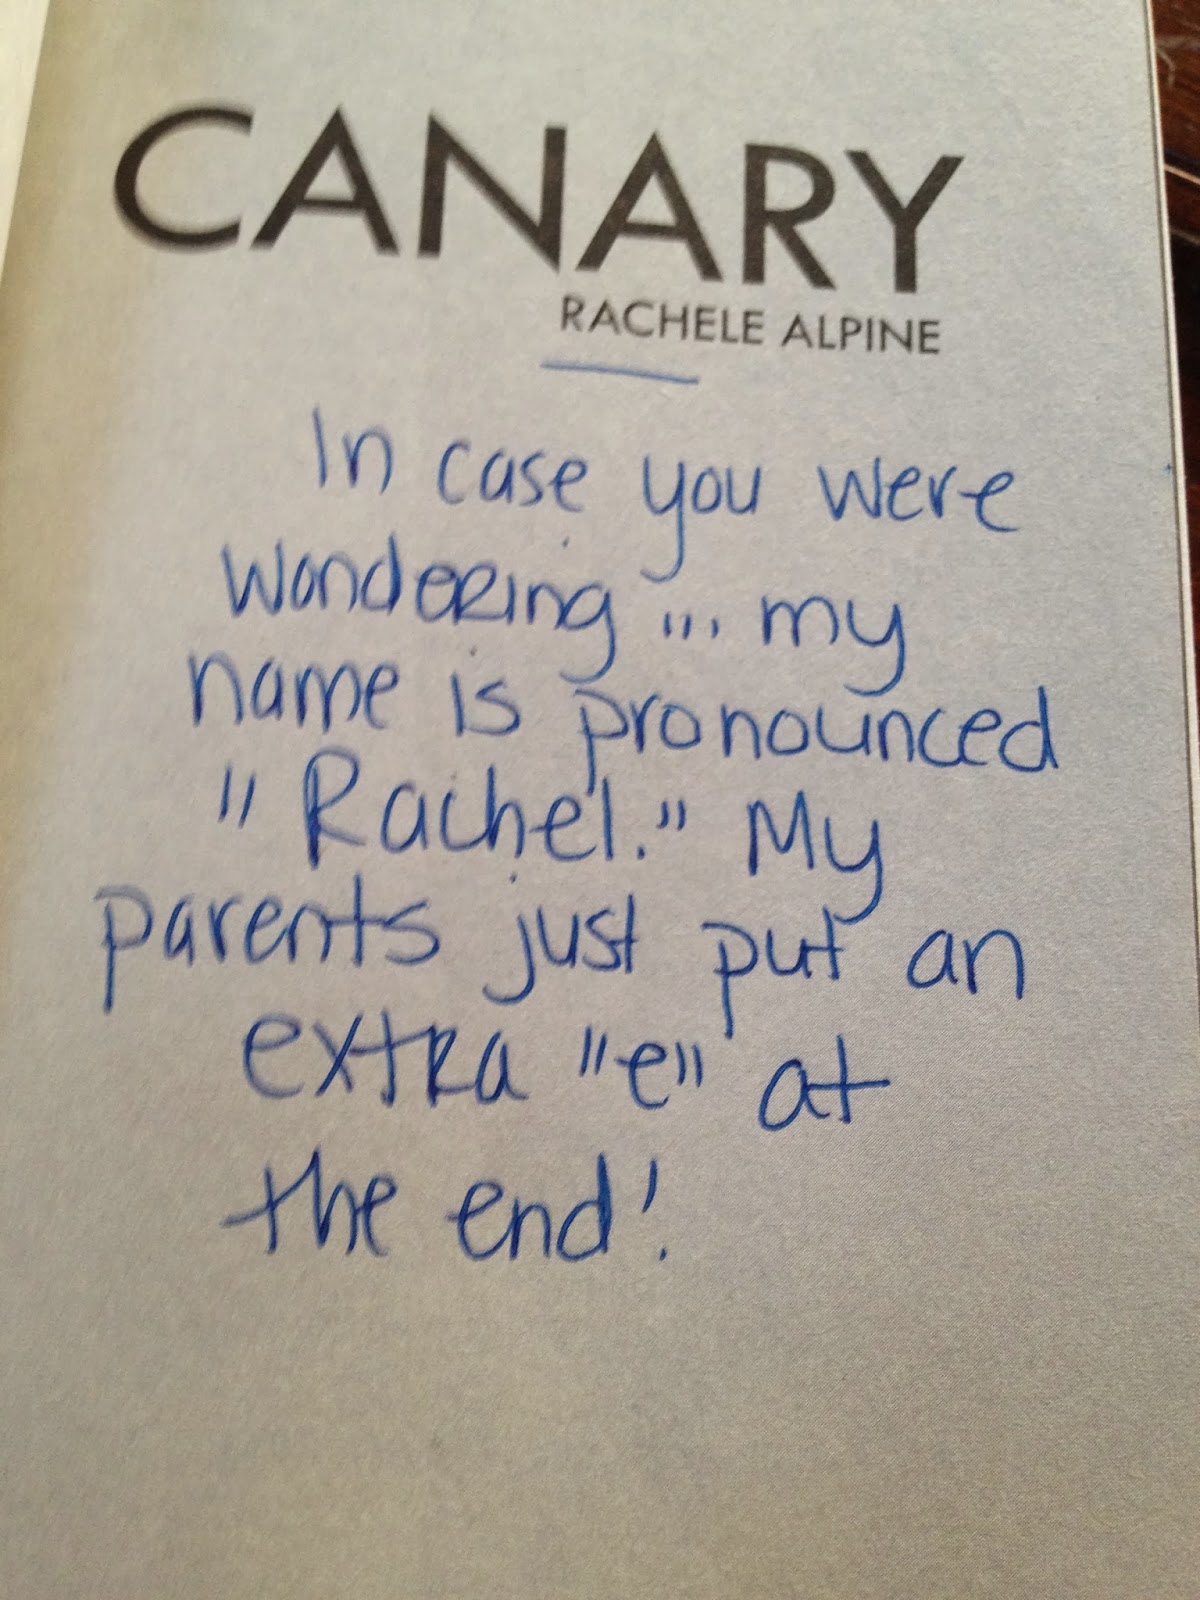 CANARY
RACHELE ALPINE
In case you were
wondering ... my
name is pronounced
"Rachel." My
parents just put an
extra "e" at
the end!